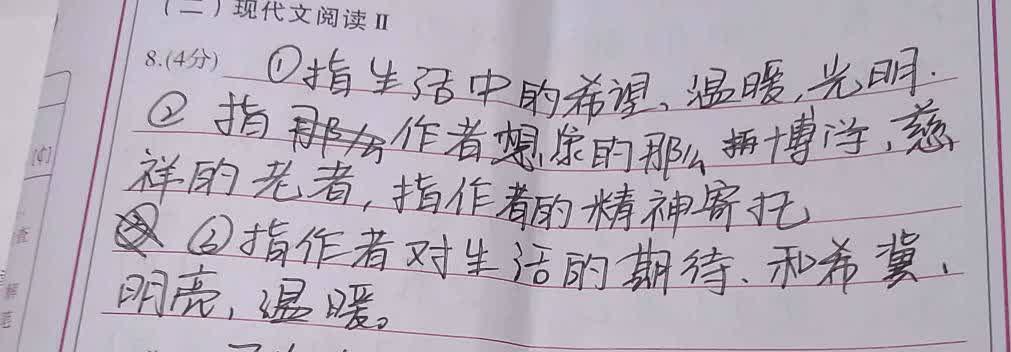 (二)现代文阅读Ⅱ
8.(4分) ①指生活中的希望、温暖,光明.
②指那么作者想象的那么博学,慈
祥的老者,指作者的精神寄托
③指作者对生活的期待、和希冀、
明亮,温暖。